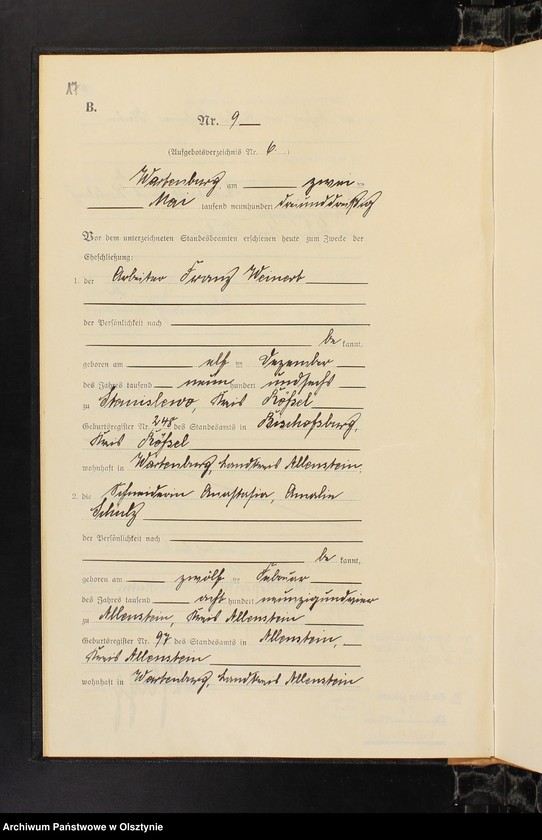 17
B.
Nr. 9
(Aufgebotsverzeichnis Nr. 6.)
Wartenburg, am zwei ten
Mai tausend neunhundert dreiunddreißig
Vor dem unterzeichneten Standesbeamten erschienen heute zum Zwecke der
Eheschließung:
1. der Arbeiter Franz Weinert
der Persönlichkeit nach
be kannt,
geboren am elf ten Dezember
des Jahres tausend neun hundert undsechs
zu Stanislewo, Kreis Rößel
Geburtsregister Nr. 248 des Standesamts in Bischofsburg,
Kreis Rößel
wohnhaft in Wartenburg, Landkreis Allenstein,
2. die Schneiderin Anastasia, Amalie
Schulz
der Persönlichkeit nach
be kannt,
geboren am zwölf ten Februar
des Jahres tausend acht hundert neunzigundvier
zu Allenstein, Kreis Allenstein
Geburtsregister Nr. 97 des Standesamts in Allenstein,
Kreis Allenstein
wohnhaft in Wartenburg, Landkreis Allenstein
Archiwum Państwowe w Olsztynie